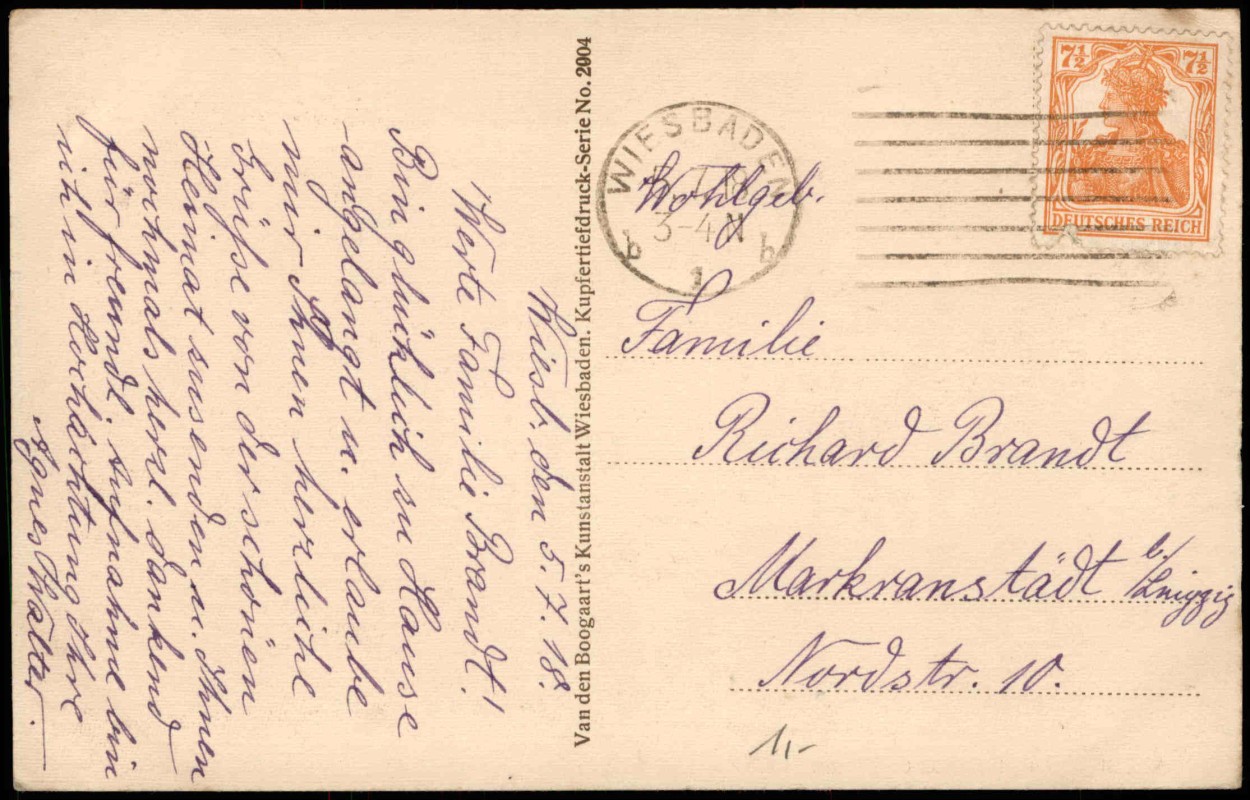 Wiesb. den 5.7.18.
Werte Familie Brandt!
Bin glücklich zu Hause
angelangt u. erlaube
mir Ihnen herzliche
Grüsse von der schönen
Heimat zu senden u. Ihnen
nochmals herzl. dankend
für freundl. Aufnahme bin
ich in Hochachtung Ihre
Agnes Walter.
Van den Boogaart's Kunstanstalt Wiesbaden. Kupfertiefdruck-Serie No. 2004
WIESBADEN
3-4 N
b 1 b
7½ 7½
DEUTSCHES REICH
Wohlgeb.
Familie
Richard Brandt
Markranstädt b/Leipzig
Nordstr. 10.
1,-